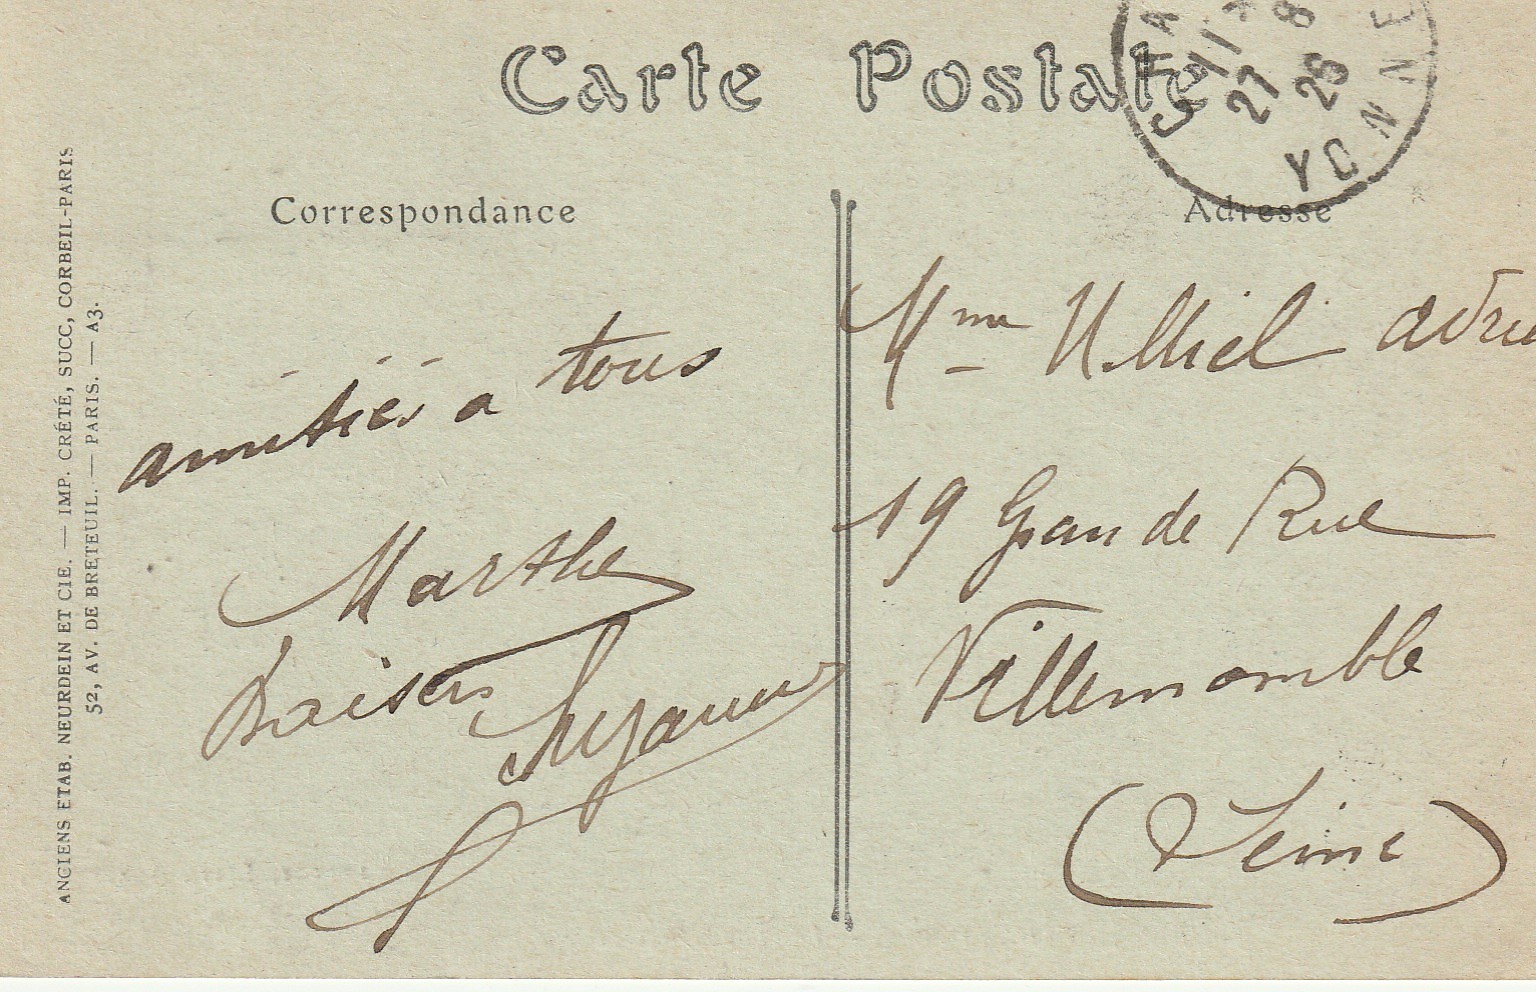 Carte Postale
YONNE
27
8
26
Correspondance
Adresse
ANCIENS ETAB. NEURDEIN ET CIE. — IMP. CRÉTÉ, SUCC, CORBEIL-PARIS
52, AV. DE BRETEUIL. — PARIS. — A3.
amitiés à tous
Marthe
Baisers Suzanne
Mme
19 Grande Rue
Villemomble
(Seine)